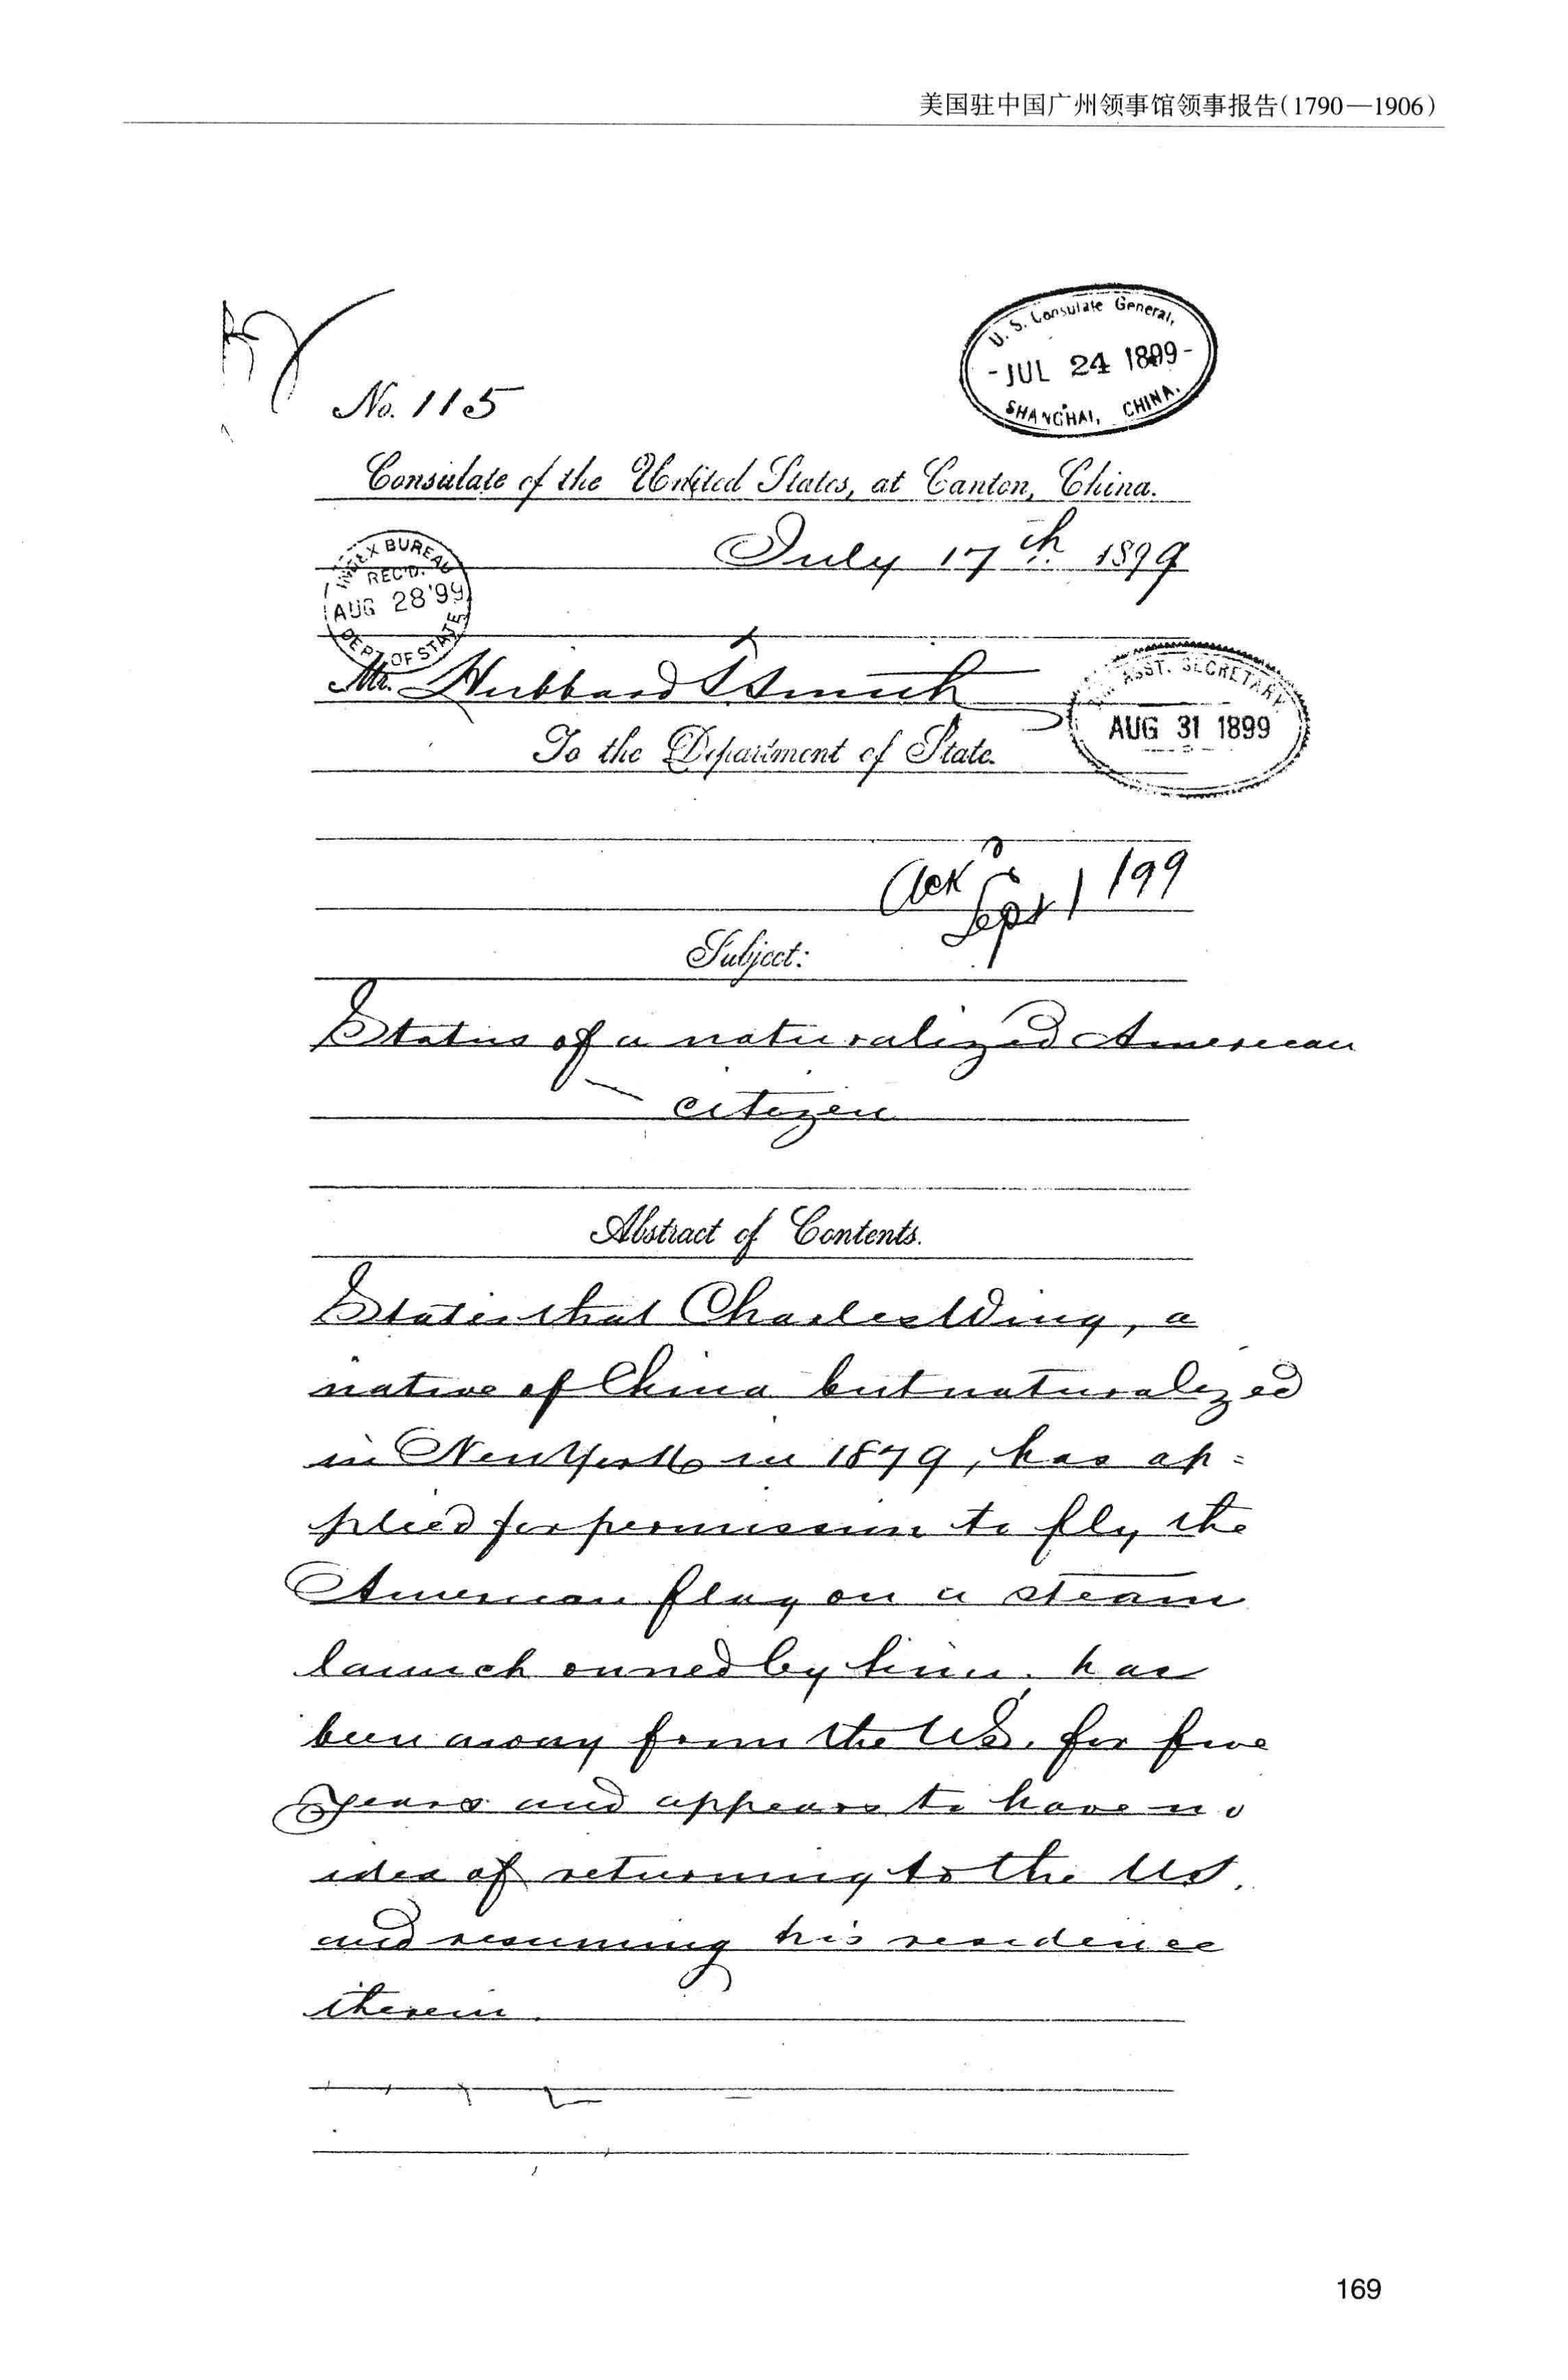 美国驻中国广州领事馆领事报告(1790—1906)
U. S. Consulate General,
- JUL 24 1899 -
SHANGHAI, CHINA.
No. 115
Consulate of the United States, at Canton, China.
July 17th 1899
INDEX BUREAU
REC'D.
AUG 28 '99
DEPT. OF STATE
Mr. Hubbard T. Smith
ASST. SECRETARY
AUG 31 1899
To the Department of State.
Ackd Sept 1/99
Subject:
Status of a naturalized American
citizen
Abstract of Contents.
States that Charles Wing, a
native of China but naturalized
in New York in 1879, has ap=
plied for permission to fly the
American flag on a steam
launch owned by him; has
been away from the U.S. for five
years and appears to have no
idea of returning to the U.S.
and resuming his residence
therein.
169